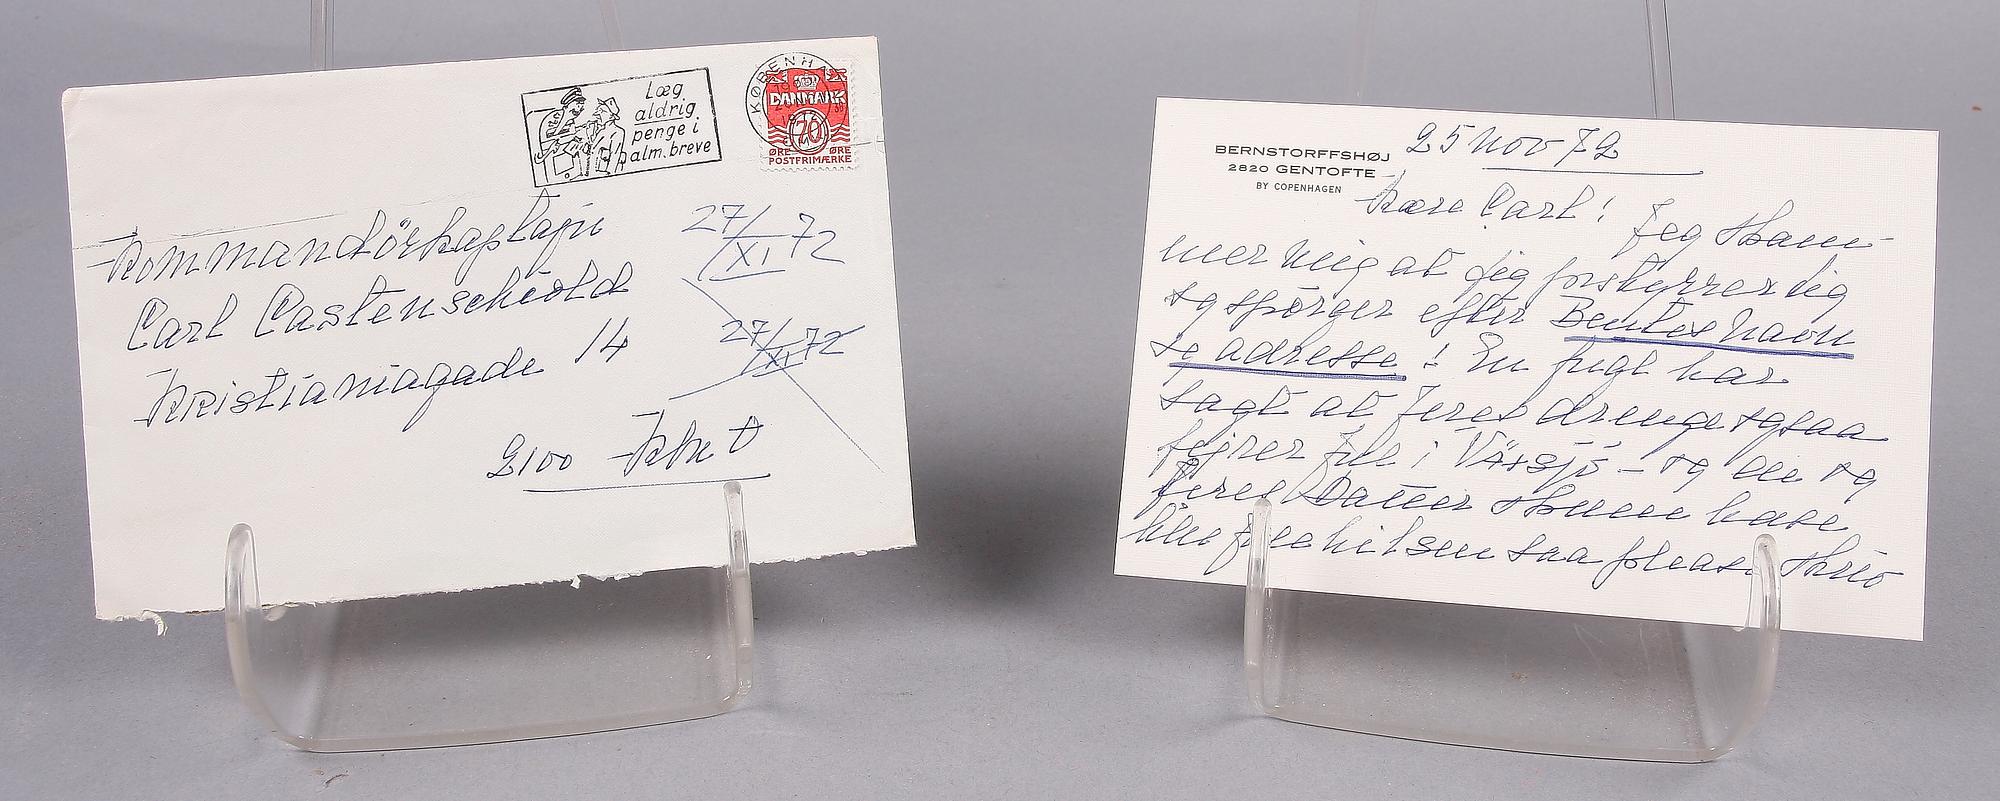 Læg
aldrig
penge i
alm. breve
KØBENHA
DANMARK
70
ØRE ØRE
POSTFRIMÆRKE
Kommandörkaptajn
Carl Castenschiold
Kristianiagade 14
2100 Kbh Ø
27/XI 72
27/XI 72
BERNSTORFFSHØJ
2820 GENTOFTE
BY COPENHAGEN
25 Nov 72
Kære Carl! Jeg skam-
mer mig at jeg forstyrrer dig
og spörger efter Bentes navn
og adresse! En fugl har
sagt at Jeres drenge ogsaa
fejrer Jul i Växsjö - og de og
Jeres Damer skulle have
lille Julehilsen saa please skriv